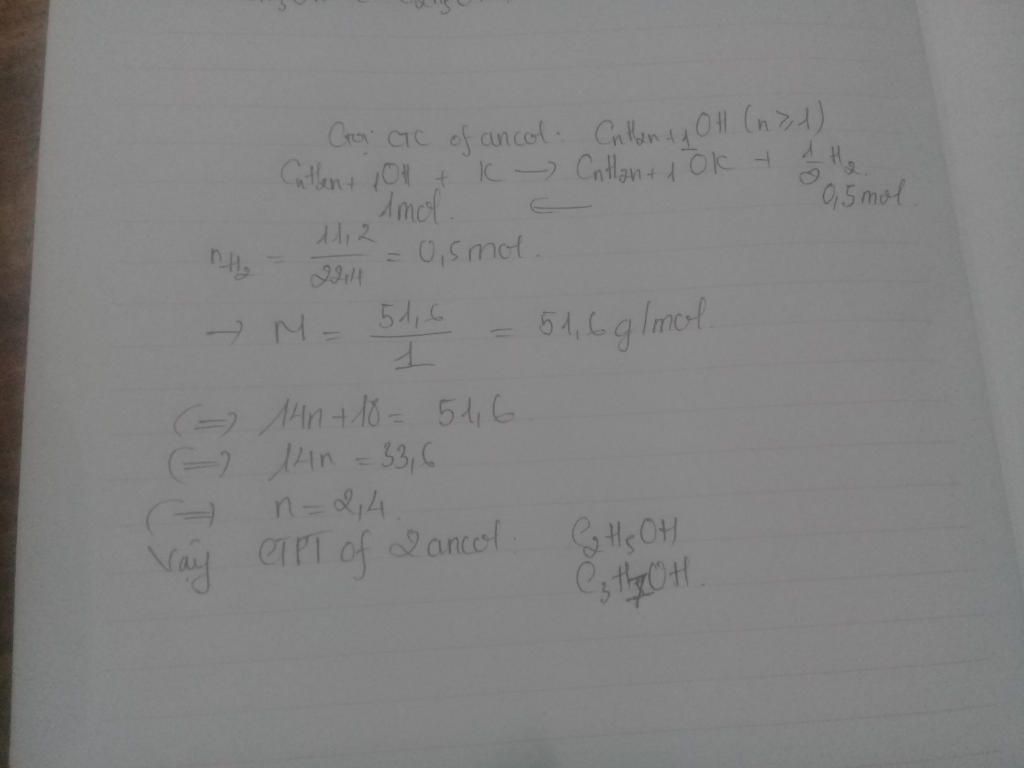 Gọi CTC of ancol: CnH2n+1OH (n ≥ 1)
CnH2n+1OH + K → CnH2n+1OK + 1/2 H2
1mol. ← 0,5 mol
nH2 = 11,2/22,4 = 0,5 mol.
→ M = 51,6/1 = 51,6 g/mol.
(=) 14n + 18 = 51,6
(=) 14n = 33,6
(=) n = 2,4.
Vậy CTPT of 2 ancol: C2H5OH
C3H7OH.